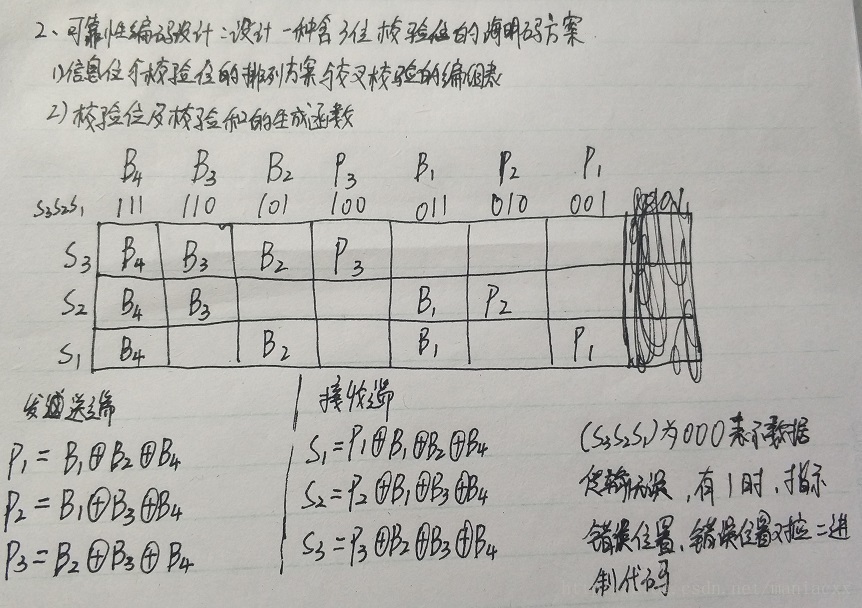 2、可靠性编码设计：设计一种含3位校验位的海明码方案
1)信息位和校验位的排列方案与交叉校验的编组表
2)校验位及校验和的生成函数
B4 B3 B2 P3 B1 P2 P1
S3S2S1 111 110 101 100 011 010 001
S3 B4 B3 B2 P3
S2 B4 B3 B1 P2
S1 B4 B2 B1 P1
发送端
P1 = B1⊕B2⊕B4
P2 = B1⊕B3⊕B4
P3 = B2⊕B3⊕B4
接收端
S1 = P1⊕B1⊕B2⊕B4
S2 = P2⊕B1⊕B3⊕B4
S3 = P3⊕B2⊕B3⊕B4
(S3S2S1)为000表示数据
传输无误，有1时，指示
错误位置，错误位置对应二进
制代码